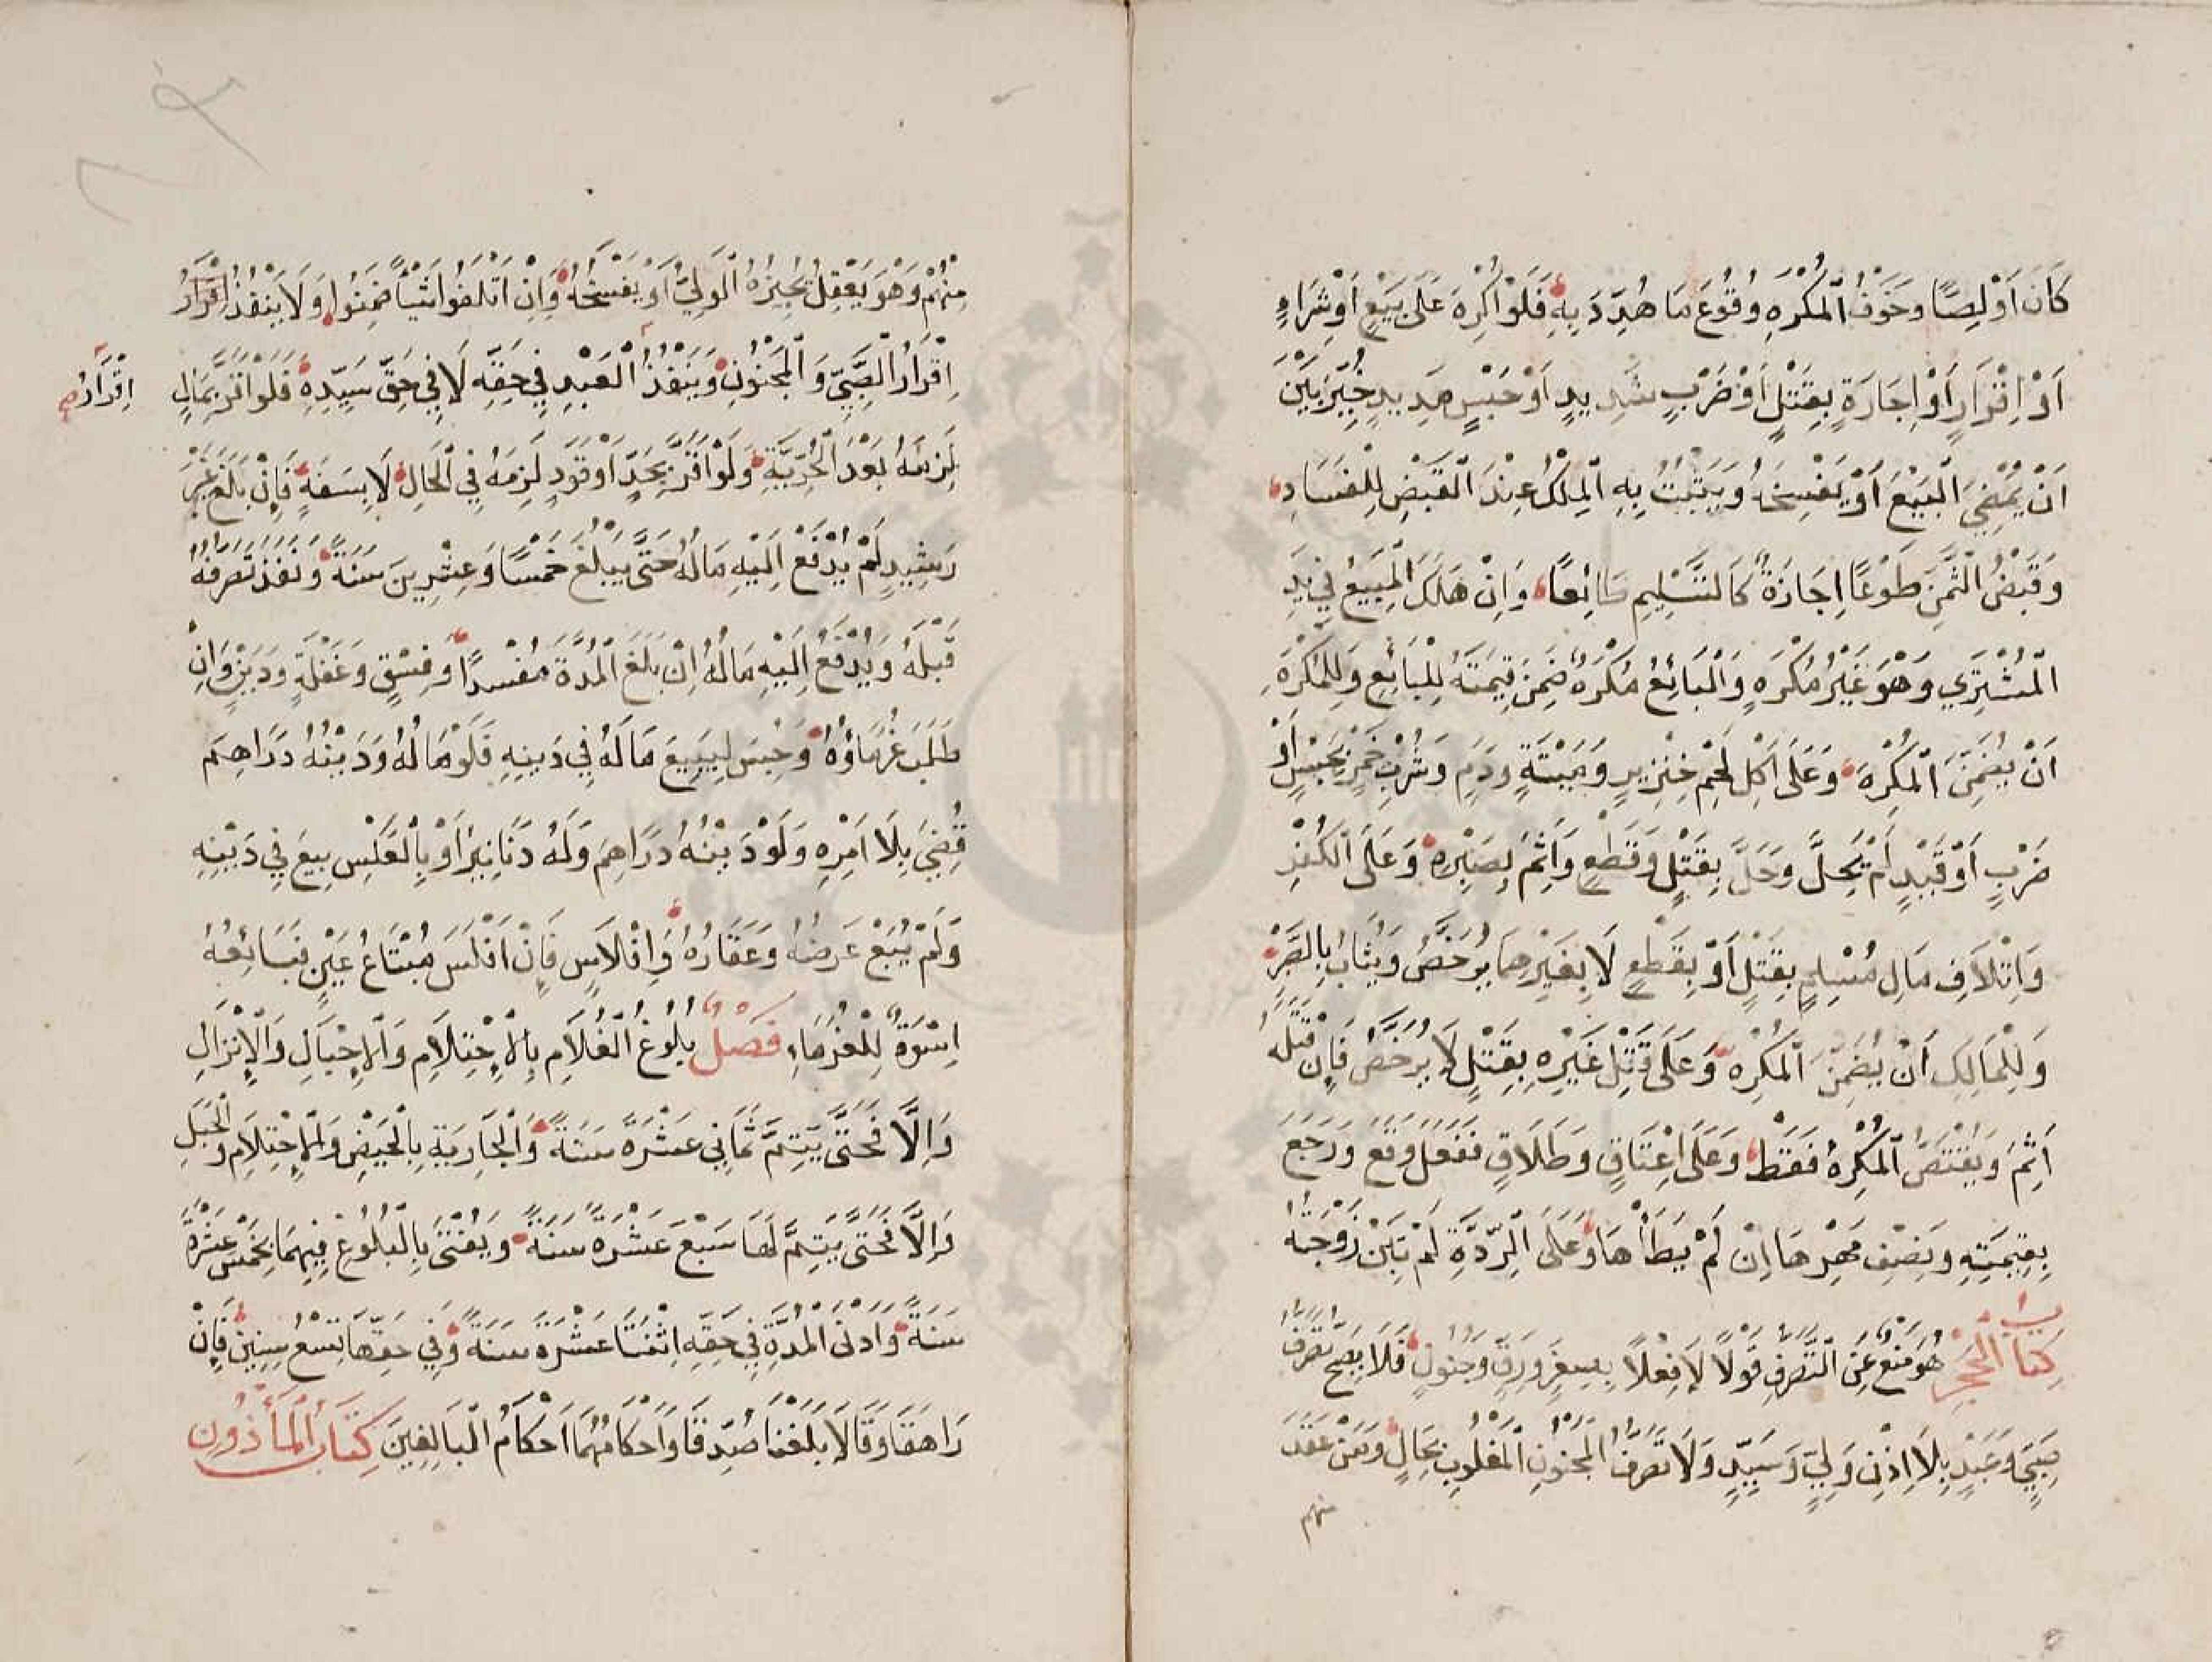 كَانَ اَوْ لِصًّا وخَوْفُ الْمُكْرَهِ وُقُوعَ مَا هُدِّدَ بِهِ فَلَوْ اُكْرِهَ عَلَى بَيْعٍ اَوْ شِرَاءٍ
اَوْ اِقْرَارٍ اَوْ اِجَارَةٍ بِقَتْلٍ اَوْ ضَرْبٍ شَدِيدٍ اَوْ حَبْسٍ مَدِيدٍ خُيِّرَ بَيْنَ
اَنْ يُمْضِيَ الْبَيْعَ اَوْ يَفْسِخَهُ وَيَثْبُتُ بِهِ الْمِلْكُ عِنْدَ الْقَبْضِ لِلْفَسَادِ
وَقَبْضُ الثَّمَنِ طَوْعًا اِجَازَةٌ كَالتَّسْلِيمِ طَائِعًا وَاِنْ هَلَكَ الْمَبِيعُ فِي يَدِ
الْمُشْتَرِي وَهْوَ غَيْرُ مُكْرَهٍ وَالْبَائِعُ مُكْرَهٌ ضَمِنَ قِيمَتَهُ لِلْبَائِعِ وَلِلْمُكْرَهِ
اَنْ يُضَمِّنَ الْمُكْرِهَ وَعَلَى اَكْلِ لَحْمِ خِنْزِيرٍ وَمَيْتَةٍ وَدَمٍ وَشُرْبِ خَمْرٍ بِحَبْسٍ اَوْ
ضَرْبٍ اَوْ قَيْدٍ لَمْ يَحِلَّ وَحَلَّ بِقَتْلٍ وَقَطْعٍ وَاَثِمَ بِصَبْرِهِ وَعَلَى الْكُفْرِ
وَاِتْلاَفِ مَالِ مُسْلِمٍ بِقَتْلٍ اَوْ بِقَطْعٍ لَا بِغَيْرِهِمَا يُرَخَّصُ وَيُثَابُ بِالصَّبْرِ
وَلِلْمَالِكِ اَنْ يُضَمِّنَ الْمُكْرِهَ وَعَلَى قَتْلِ غَيْرِهِ بِقَتْلٍ لَا يُرَخَّصُ فَاِنْ قَتَلَهُ
اَثِمَ وَيُقْتَصُّ الْمُكْرِهُ فَقَطْ وَعَلَى اِعْتَاقٍ وَطَلَاقٍ فَفَعَلَ وَقَعَ وَرَجَعَ
بِقِيمَتِهِ وَنِصْفِ مَهْرِهَا اِنْ لَمْ يَطَأْهَا وَعَلَى الرِّدَّةِ لَمْ تَبِنْ زَوْجَتُهُ
كِتَابُ الْحَجْرِ هُوَ مَنْعٌ عَنِ التَّصَرُّفِ قَوْلًا لَا فِعْلًا بِصِغَرٍ وَرِقٍّ وَجُنُونٍ فَلَا يَصِحُّ تَصَرُّفُ
صَبِيٍّ وَعَبْدٍ بِلَا اِذْنِ وَلِيٍّ وَسَيِّدٍ وَلَا تَصَرُّفُ الْمَجْنُونِ الْمَغْلُوبِ بِحَالٍ وَمَنْ عَقَدَ
منهم
مِنْهُمْ وَهْوَ يَعْقِلُ يُجِيزُهُ الْوَلِيُّ اَوْ يَفْسَخُهُ وَاِنْ اَتْلَفُوا شَيْأً ضَمِنُوا وَلَا يَنْفُذُ اِقْرَارُ
اِقْرَارُ الصَّبِيِّ وَالْمَجْنُونِ وَيَنْفُذُ الْعَبْدِ فِي حَقِّهِ لَا فِي حَقِّ سَيِّدِهِ فَلَوْ اَقَرَّ بِمَالٍ
اِقْرَارُ صح
لَزِمَهُ بَعْدَ الْحُرِّيَّةِ وَلَوْ اَقَرَّ بِحَدٍّ اَوْ قَوَدٍ لَزِمَهُ فِي الْحَالِ لَا بِسَفَهٍ فَاِنْ بَلَغَ غَيْرَ
رَشِيدٍ لَمْ يُدْفَعْ اِلَيْهِ مَالُهُ حَتَّى يَبْلُغَ خَمْسًا وَعِشْرِينَ سَنَةً وَنَفَذَ تَصَرُّفُهُ
قَبْلَهُ وَيُدْفَعُ اِلَيْهِ مَالُهُ اِنْ بَلَغَ الْمُدَّةَ مُفْسِدًا وَفِسْقٍ وَغَفْلَةٍ وَدَيْنٍ وَاِنْ
طَلَبَ غُرَمَاؤُهُ وَحُبِسَ لِيَبِيعَ مَالَهُ فِي دَيْنِهِ فَلَوْ مَالُهُ وَدَيْنُهُ دَرَاهِمَ
قُضِيَ بِلَا اَمْرِهِ وَلَوْ دَيْنُهُ دَرَاهِمَ وَلَهُ دَنَانِيرُ اَوْ بِالْعَكْسِ بِيعَ فِي دَيْنِهِ
وَلَمْ يُبَعْ عَرضُهُ وَعَقَارُهُ وَاِفْلَاسٍ فَاِنْ اَفْلَسَ مُبْتَاعُ عَيْنٍ فَبَائِعُهُ
اِسْوَةٌ لِلْغُرَمَاءِ فَصْلٌ بُلُوغُ الْغُلَامِ بِالْاِحْتِلَامِ وَالْاِحْبَالِ وَالْاِنْزَالِ
وَاِلَّا فَحَتَّى يَتِمَّ ثَمَانِي عَشْرَةَ سَنَةً وَالْجَارِيَةِ بِالْحَيْضِ وَالْاِحْتِلَامِ وَالْحَبَلِ
وَاِلَّا فَحَتَّى يَتِمَّ لَهَا سَبْعَ عَشْرَةَ سَنَةً وَيُفْتَى بِالْبُلُوغِ فِيهِمَا بِخَمْسَ عَشْرَةَ
سَنَةً وَاَدْنَى الْمُدَّةِ فِي حَقِّهِ اِثْنَتَا عَشْرَةَ سَنَةً وَفِي حَقِّهَا تِسْعُ سِنِينَ فَاِنْ
رَاهَقَا وَقَالَا بَلَغْنَا صُدِّقَا وَاَحْكَامُهُمَا اَحْكَامُ الْبَالِغِينَ كِتَابُ الْمَأْذُونِ